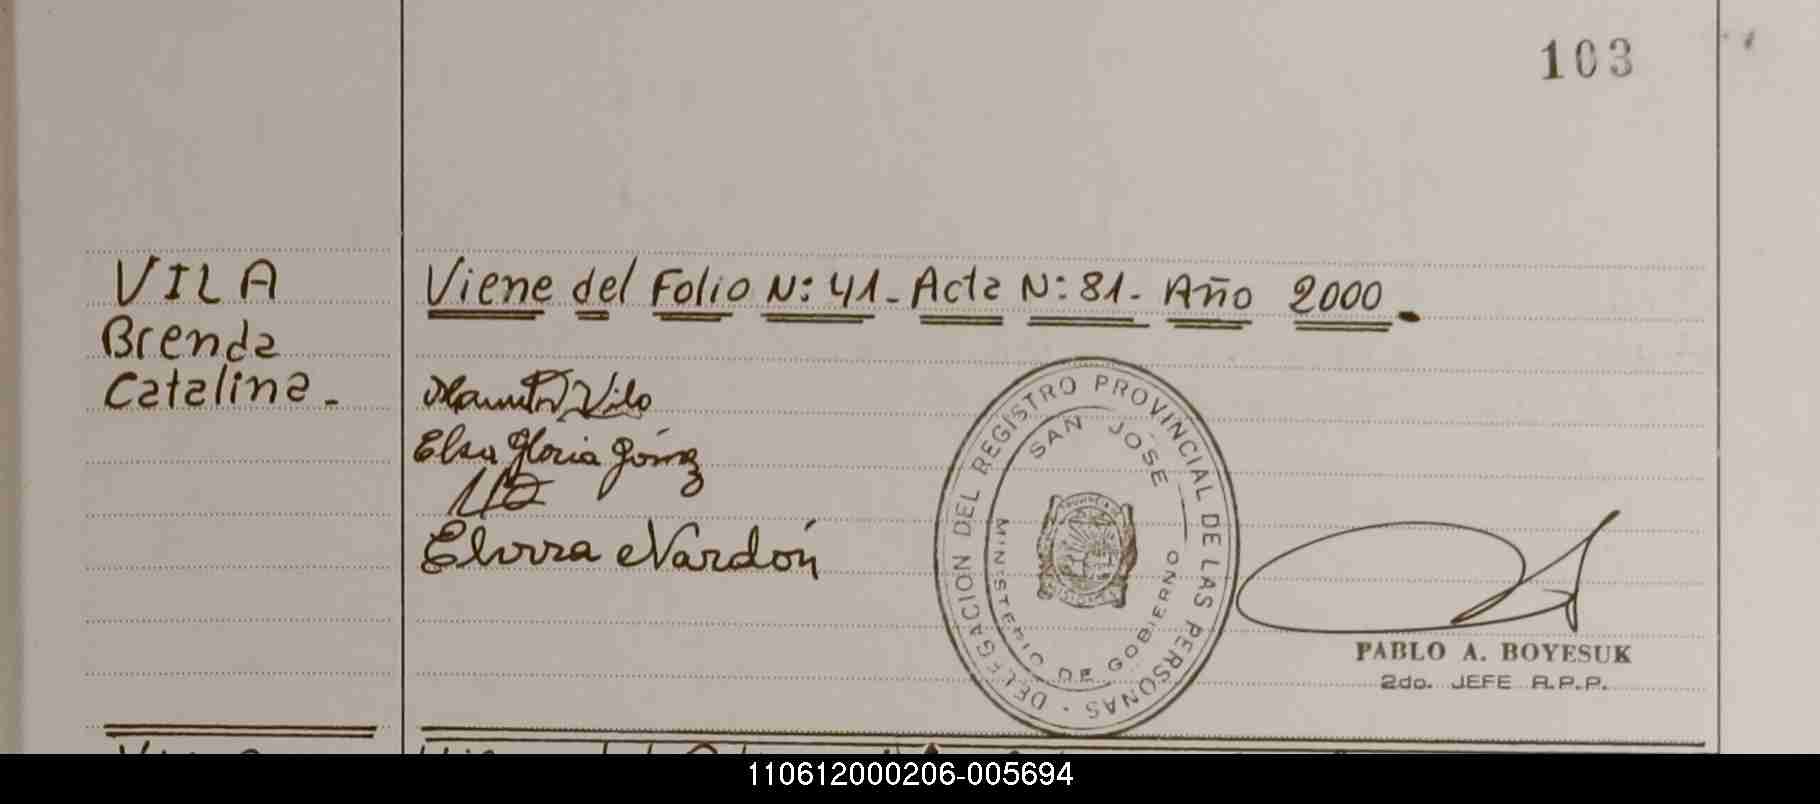 103
VILA
Brenda
Catalina.-
Viene del Folio N: 41.- Acta N: 81.- Año 2000.
Vila
Elsa Gloria Gómez
Elvira Nardón
DELEGACION DEL REGISTRO PROVINCIAL DE LAS PERSONAS
SAN JOSÉ
MINISTERIO DE GOBIERNO
PABLO A. BOYESUK
2do. JEFE R.P.P.
110612000206-005694